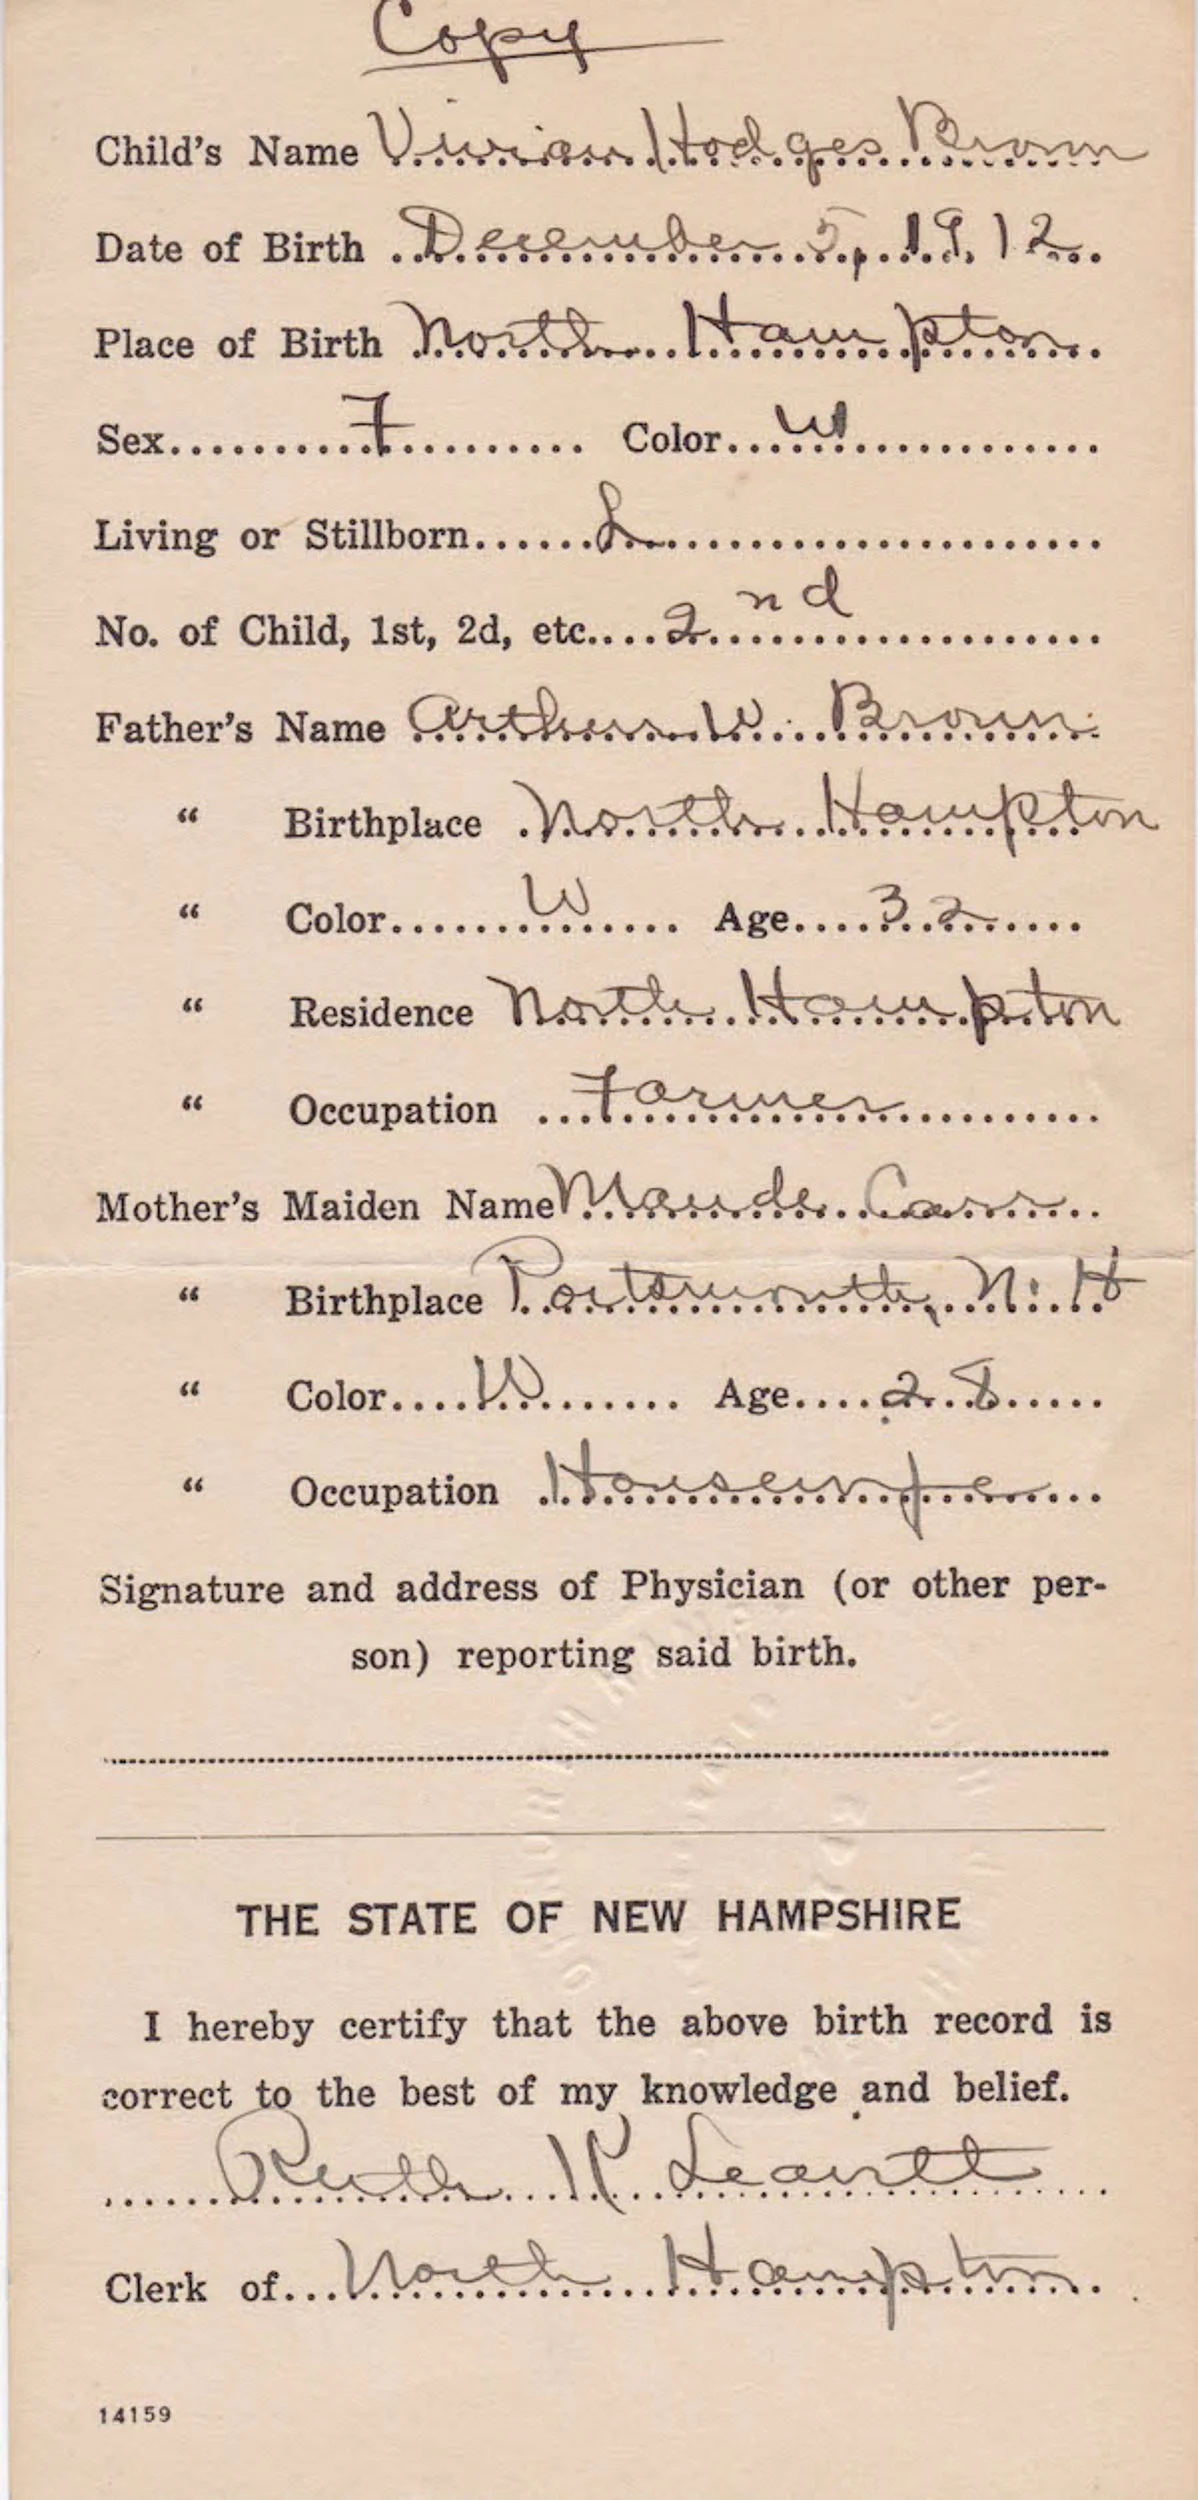 Copy
Child's Name Vivian Hodges Brown
Date of Birth December 5, 1912
Place of Birth North Hampton
Sex F Color W
Living or Stillborn L
No. of Child, 1st, 2d, etc. 2nd
Father's Name Arthur W. Brown
“ Birthplace North Hampton
“ Color W Age 32
“ Residence North Hampton
“ Occupation Farmer
Mother's Maiden Name Maude Carr
“ Birthplace Portsmouth, N. H
“ Color W Age 28
“ Occupation Housewife
Signature and address of Physician (or other per-
son) reporting said birth.
THE STATE OF NEW HAMPSHIRE
I hereby certify that the above birth record is
correct to the best of my knowledge and belief.
Ruth K Leavitt
Clerk of North Hampton
14159